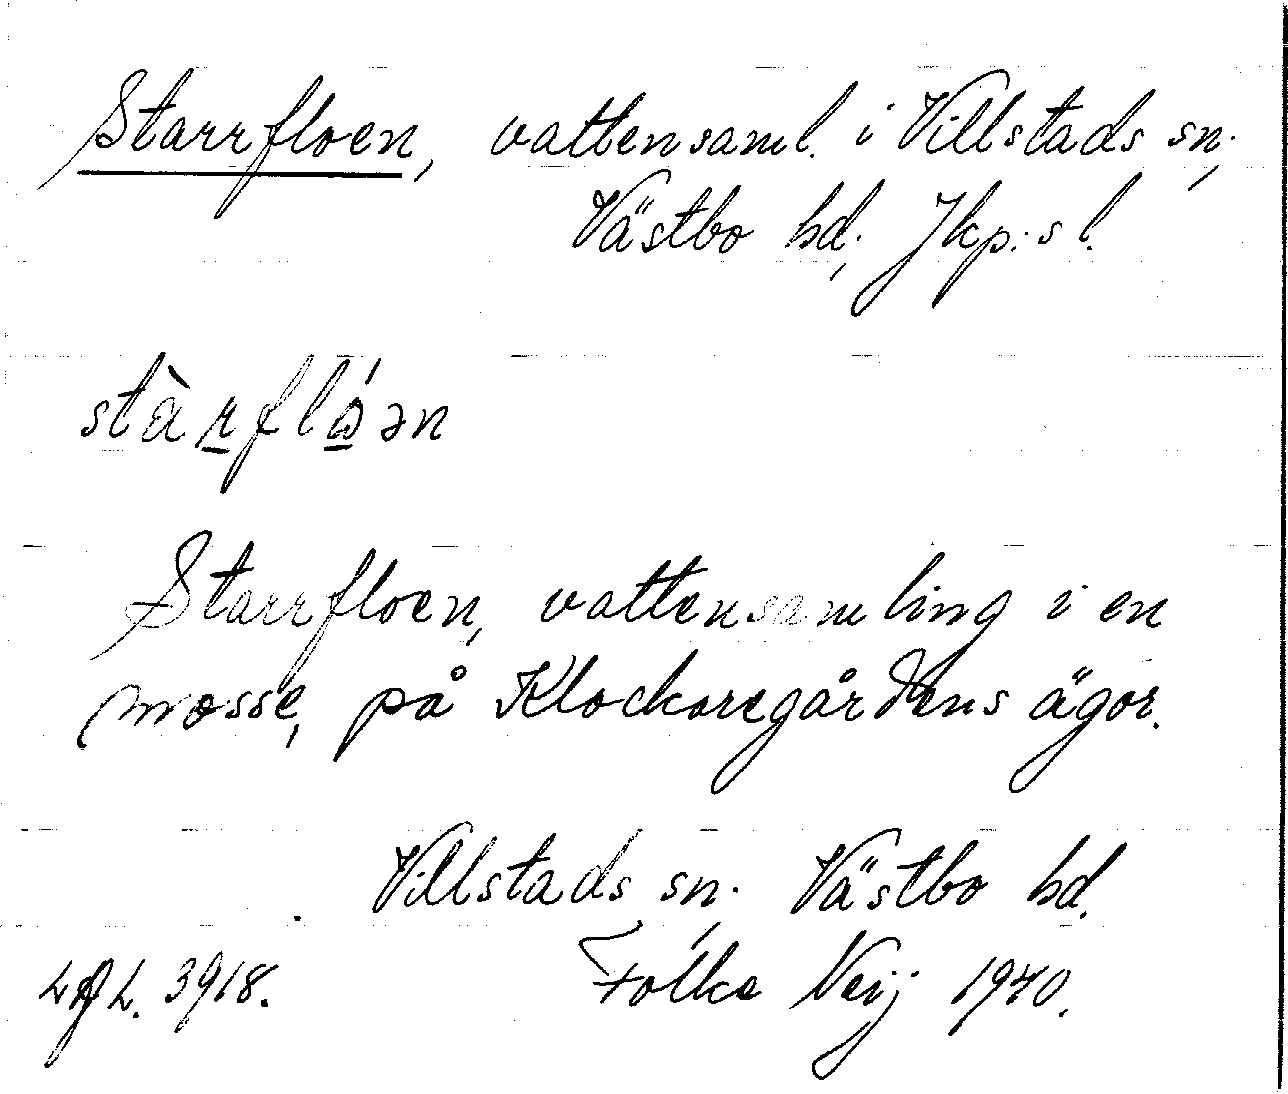 Starrfloen, vattensaml. i Villstads sn.,
Västbo hd., Jkp:s l.
stàrflóən
Starrfloen, vattensamling i en
mosse, på Klockaregårdens ägor.
Villstads sn., Västbo hd.
3918. Folke Neij 1940.